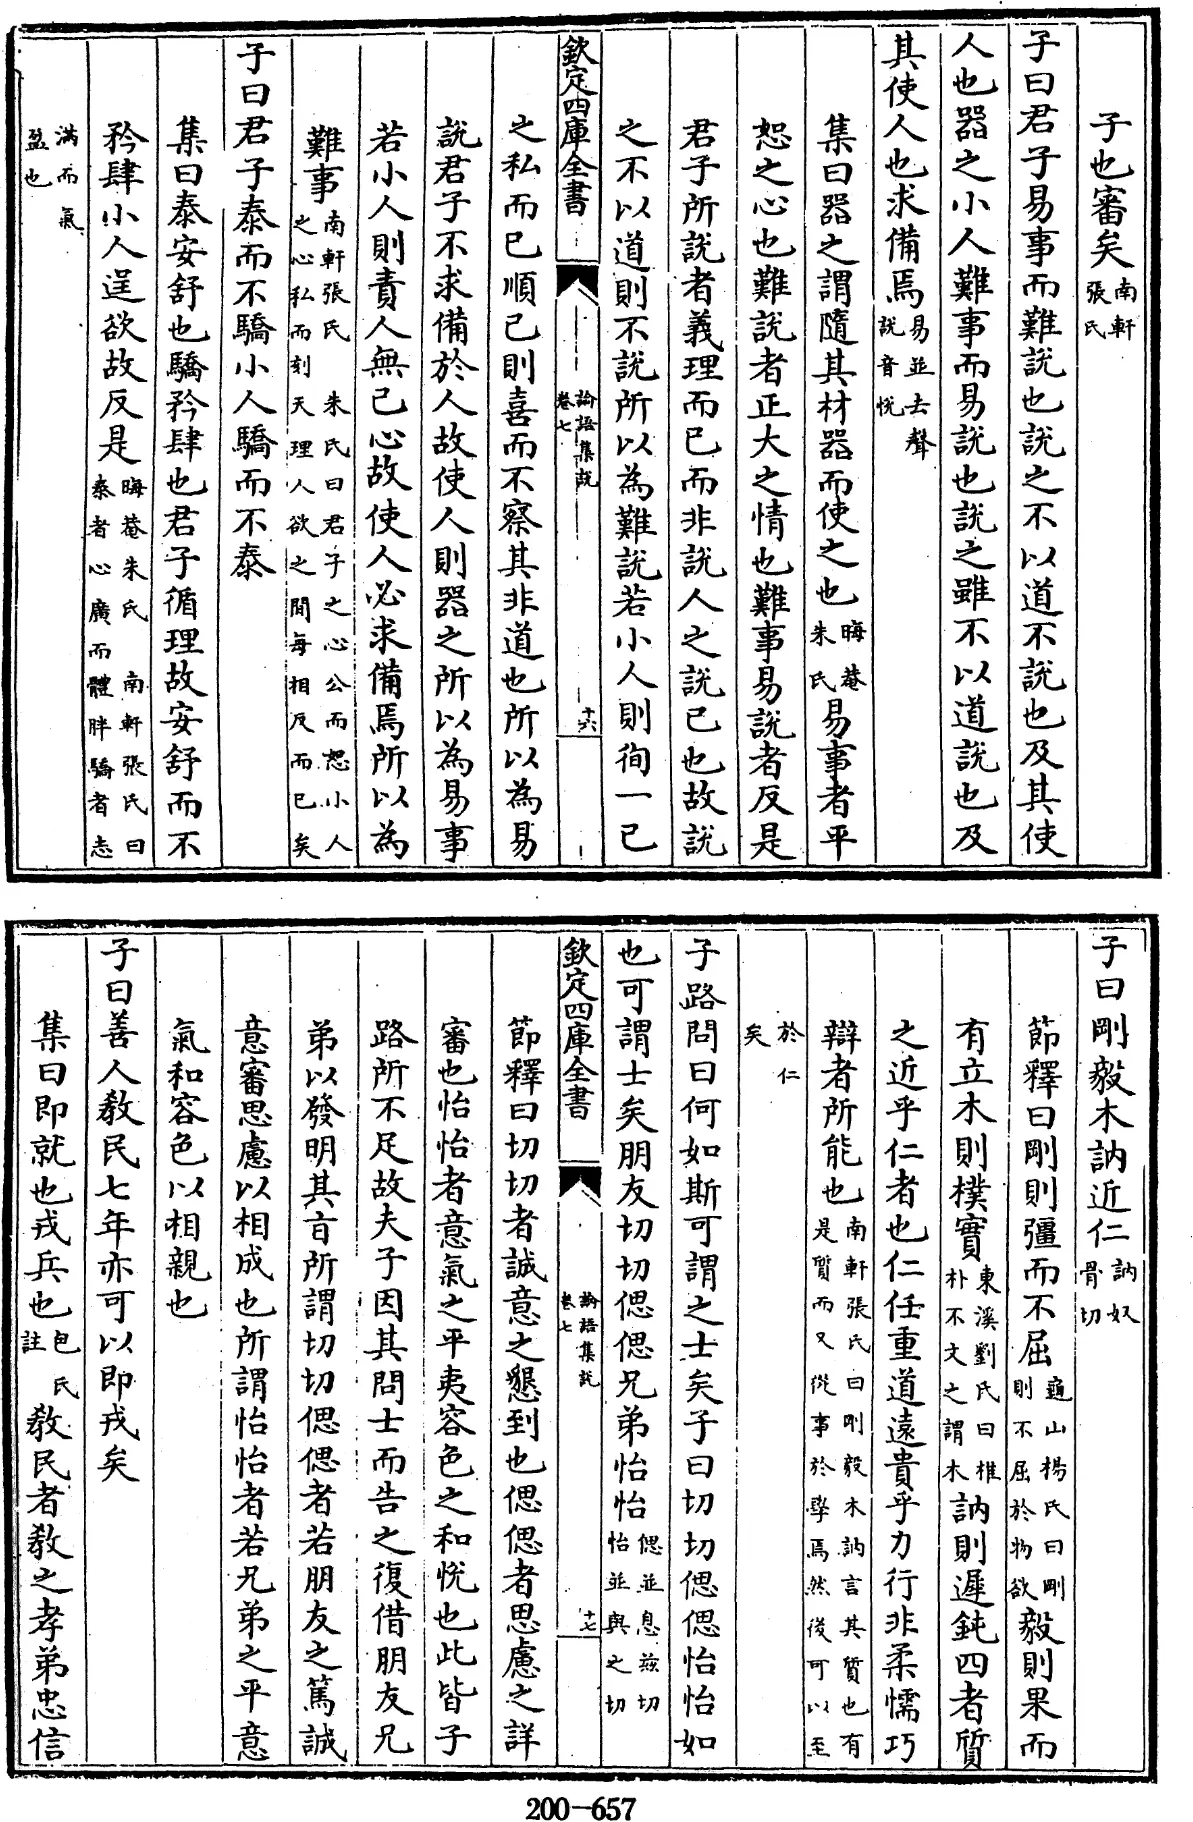 子也審矣南軒張氏
子曰君子易事而難説也説之不以道不説也及其使
人也器之小人難事而易説也説之雖不以道説也及
其使人也求備焉易並去聲説音悦
集曰器之謂隨其材器而使之也晦菴朱氏易事者平
恕之心也難説者正大之情也難事易説者反是
君子所説者義理而已而非説人之説已也故説
之不以道則不説所以為難説若小人則徇一已
欽定四庫全書
論語集説
卷七
十六
之私而已順已則喜而不察其非道也所以為易
説君子不求備於人故使人則器之所以為易事
若小人則責人無已心故使人必求備焉所以為
難事南軒張氏 朱氏曰君子之心公而恕小人之心私而刻天理人欲之間每相反而已矣
子曰君子泰而不驕小人驕而不泰
集曰泰安舒也驕矜肆也君子循理故安舒而不
矜肆小人逞欲故反是晦菴朱氏 南軒張氏曰泰者心廣而體胖驕者志
滿而氣盈也
子曰剛毅木訥近仁訥奴骨切
節釋曰剛則彊而不屈龜山楊氏曰剛則不屈於物欲毅則果而
有立木則樸實東溪劉氏曰椎朴不文之謂木訥則遲鈍四者質
之近乎仁者也仁任重道遠貴乎力行非柔懦巧
辯者所能也南軒張氏曰剛毅木訥言其質也有是質而又從事於學焉然後可以至
於仁矣
子路問曰何如斯可謂之士矣子曰切切偲偲怡怡如
也可謂士矣朋友切切偲偲兄弟怡怡偲並息玆切怡並與之切
欽定四庫全書
論語集説
卷七
十七
節釋曰切切者誠意之懇到也偲偲者思慮之詳
審也怡怡者意氣之平夷容色之和悦也此皆子
路所不足故夫子因其問士而告之復借朋友兄
弟以發明其㫖所謂切切偲偲者若朋友之篤誠
意審思慮以相成也所謂怡怡者若兄弟之平意
氣和容色以相親也
子曰善人教民七年亦可以即戎矣
集曰即就也戎兵也包氏註教民者教之孝弟忠信
200-657